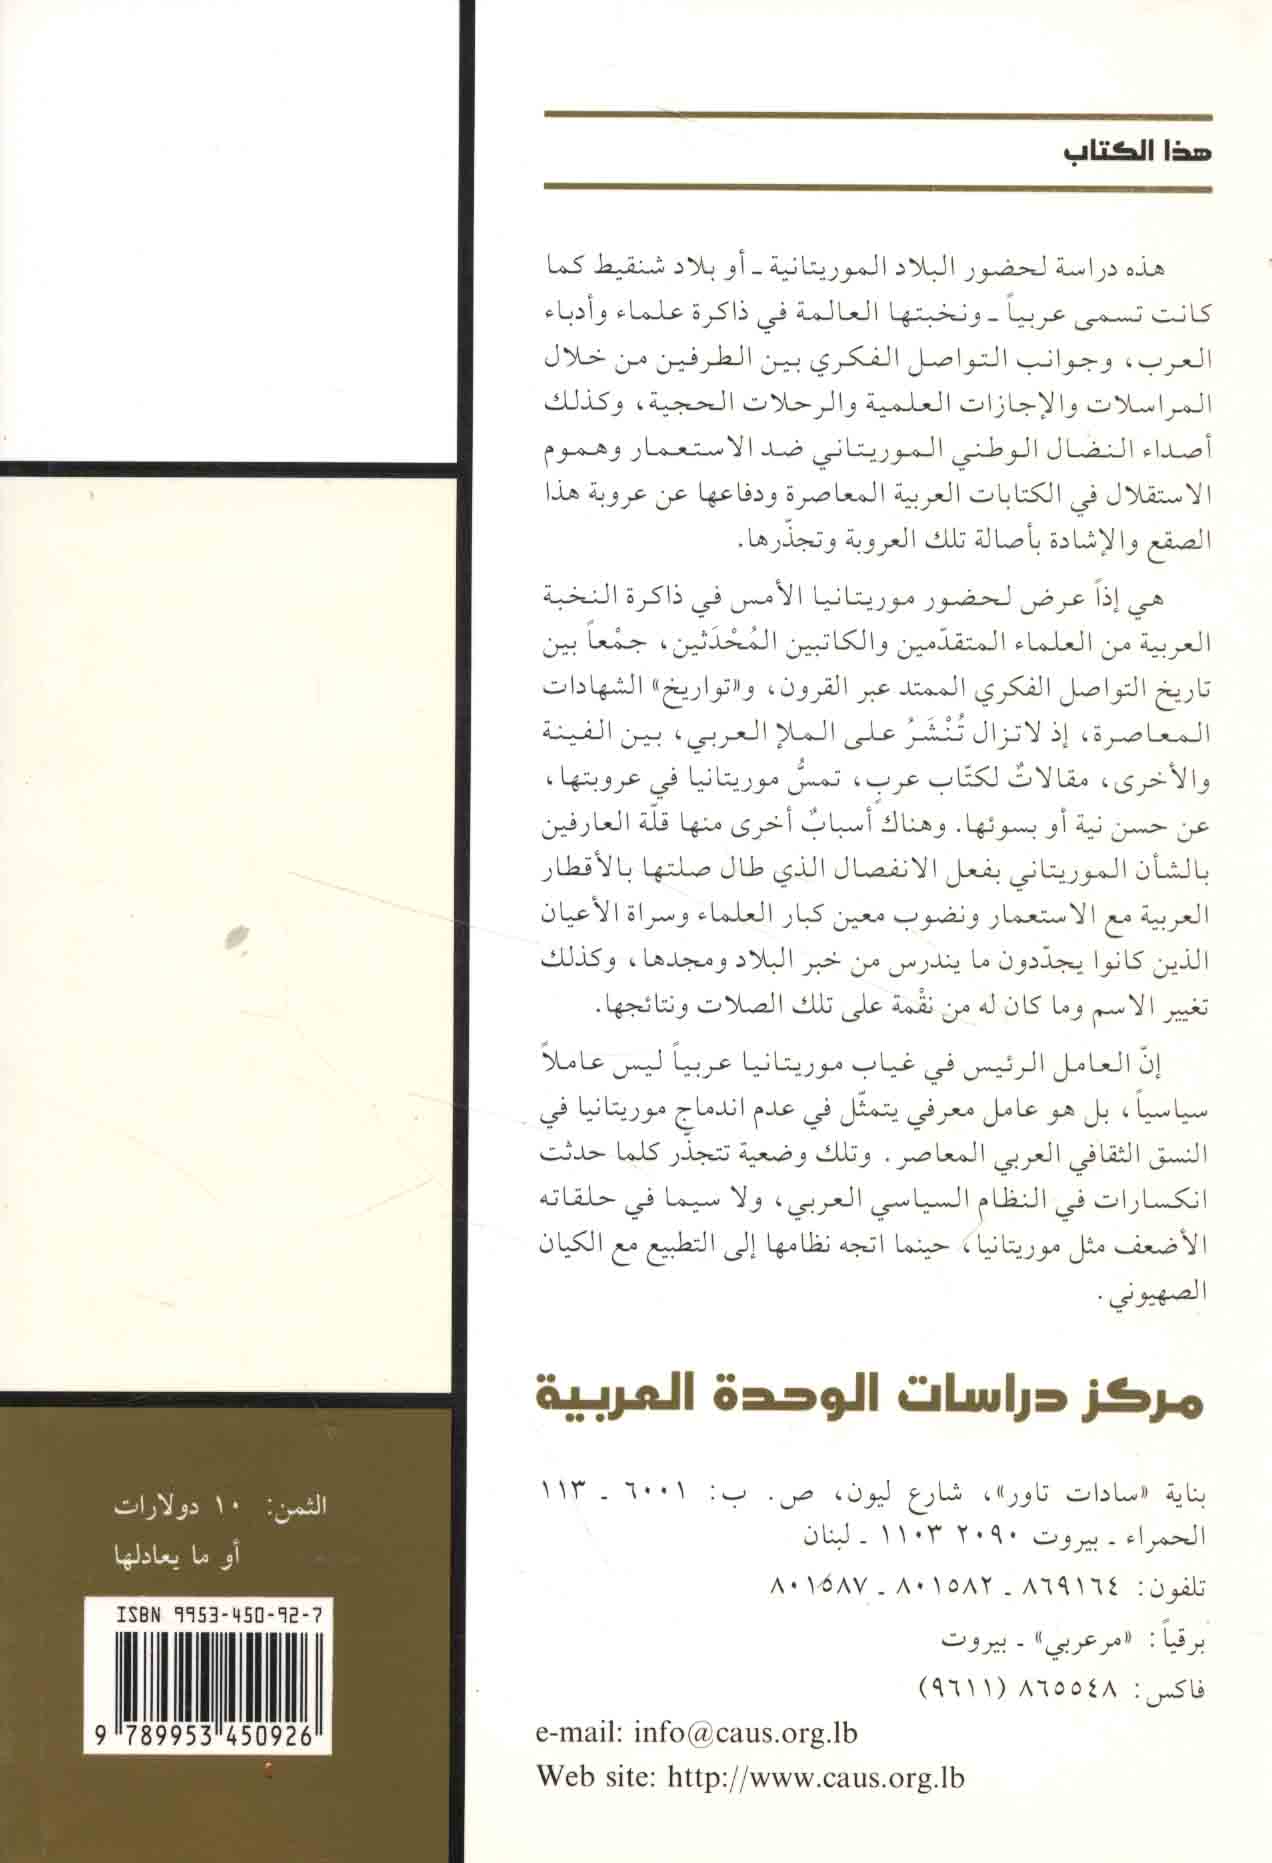 هذا الكتاب
هذه دراسة لحضور البلاد الموريتانية ـ أو بلاد شنقيط كما
كانت تسمى عربياً ـ ونخبتها العالمة في ذاكرة علماء وأدباء
العرب، وجوانب التواصل الفكري بين الطرفين من خلال
المراسلات والإجازات العلمية والرحلات الحجية، وكذلك
أصداء النضال الوطني الموريتاني ضد الاستعمار وهموم
الاستقلال في الكتابات العربية المعاصرة ودفاعها عن عروبة هذا
الصقع والإشادة بأصالة تلك العروبة وتجذّرها.
هي إذاً عرض لحضور موريتانيا الأمس في ذاكرة النخبة
العربية من العلماء المتقدّمين والكاتبين المُحْدَثين، جمْعاً بين
تاريخ التواصل الفكري الممتد عبر القرون، و«تواريخ» الشهادات
المعاصرة، إذ لاتزال تُنْشَرُ على الملإ العربي، بين الفينة
والأخرى، مقالاتٌ لكتّاب عربٍ، تمسُّ موريتانيا في عروبتها،
عن حسن نية أو بسوئها. وهناك أسبابٌ أخرى منها قلّة العارفين
بالشأن الموريتاني بفعل الانفصال الذي طال صلتها بالأقطار
العربية مع الاستعمار ونضوب معين كبار العلماء وسراة الأعيان
الذين كانوا يجدّدون ما يندرس من خبر البلاد ومجدها، وكذلك
تغيير الاسم وما كان له من نقْمة على تلك الصلات ونتائجها.
إنّ العامل الرئيس في غياب موريتانيا عربياً ليس عاملاً
سياسياً، بل هو عامل معرفي يتمثّل في عدم اندماج موريتانيا في
النسق الثقافي العربي المعاصر. وتلك وضعية تتجذّر كلما حدثت
انكسارات في النظام السياسي العربي، ولا سيما في حلقاته
الأضعف مثل موريتانيا، حينما اتجه نظامها إلى التطبيع مع الكيان
الصهيوني.
مركز دراسات الوحدة العربية
بناية «سادات تاور»، شارع ليون، ص. ب: ٦٠٠١ ـ ١١٣
الحمراء ـ بيروت ٢٠٩٠ ١١٠٣ ـ لبنان
تلفون: ٨٦٩١٦٤ ـ ٨٠١٥٨٢ ـ ٨٠١٥٨٧
برقياً: «مرعربي» ـ بيروت
فاكس: ٨٦٥٥٤٨ (٩٦١١)
e-mail: info@caus.org.lb
Web site: http://www.caus.org.lb
الثمن: ١٠ دولارات
أو ما يعادلها
ISBN 9953-450-92-7
9 789953 450926